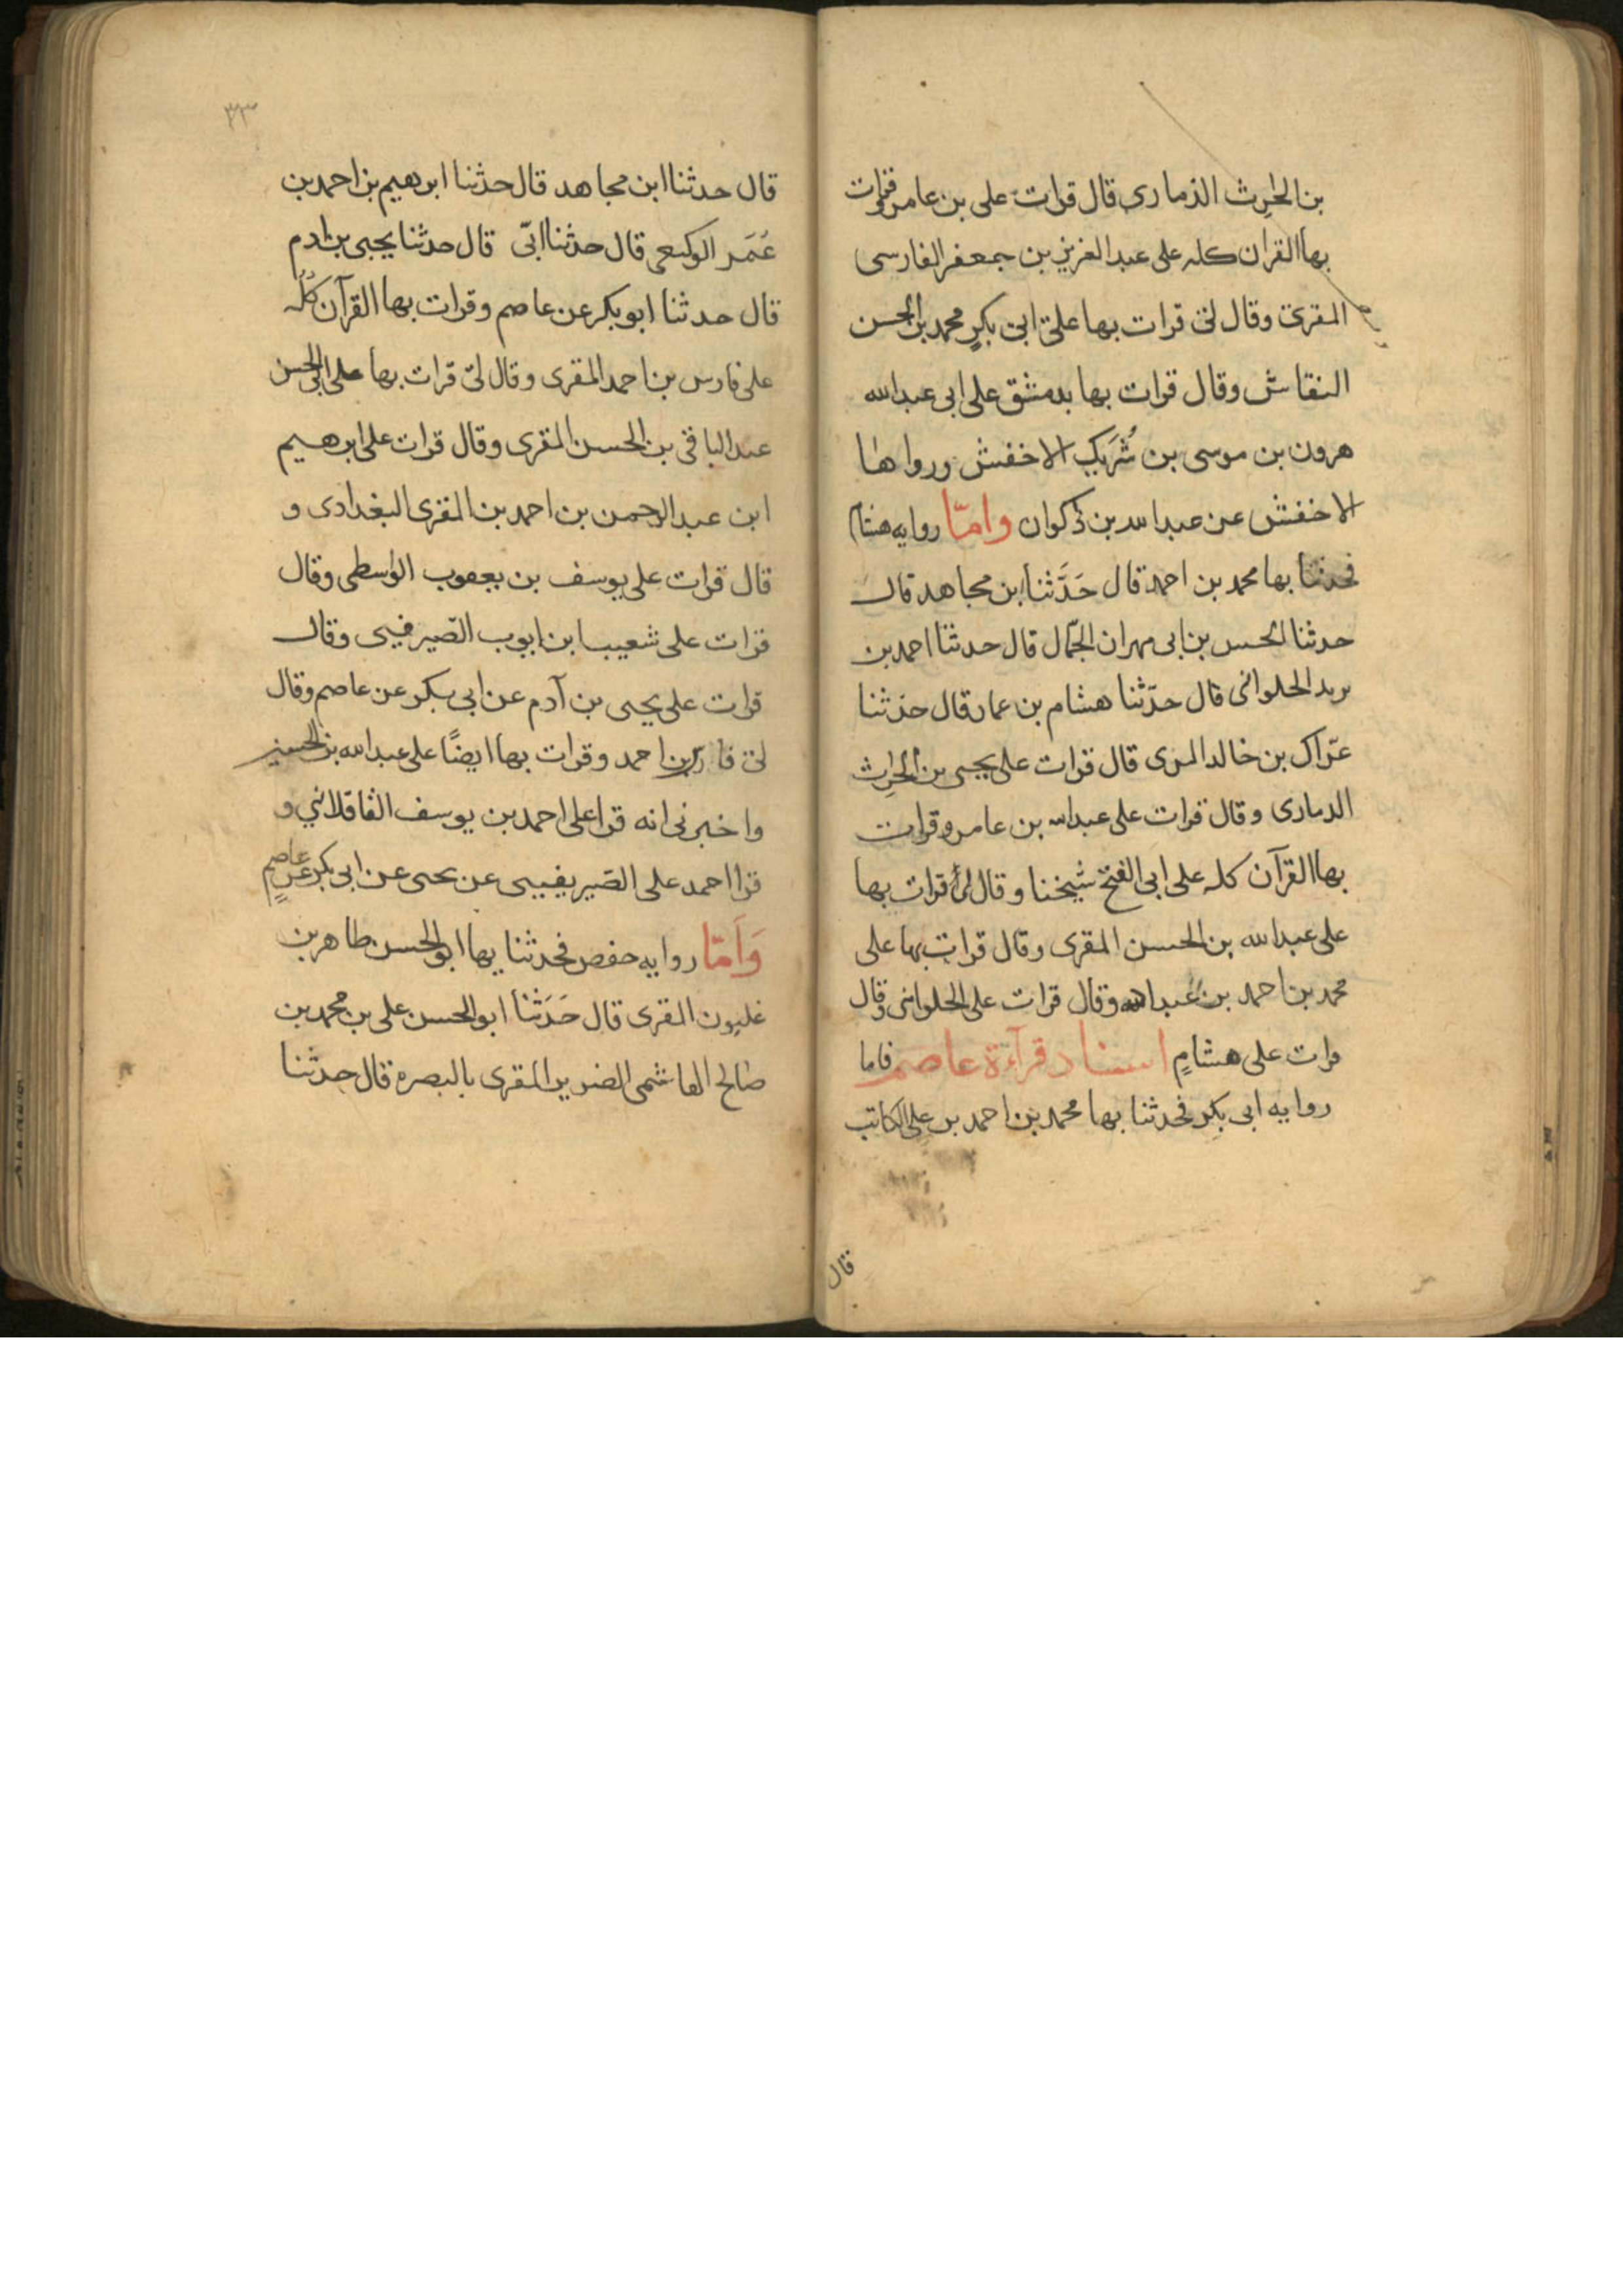 بن الحرث الذماري قال قرات على بن عامر وقرات
بها القران كله على عبد العزيز بن جعفر الفارسي
المقرئ وقال لى قرات بها على ابى بكر محمد بن الحسن
النقاش وقال قرات بها بدمشق على ابى عبد الله
هرون بن موسى بن شُرَيك الاخفش ورواها
الاخفش عن عبد الله بن ذكوان وامّا روايه هشام
فحدثنا بها محمد بن احمد قال حَدَّثنا ابن مجاهد قال
حدثنا الحسن بن ابى مهران الجمّال قال حدثنا احمد بن
يزيد الحلوانى قال حدّثنا هشام بن عمار قال حدثنا
عرّاك بن خالد المرى قال قرات على يحيى بن الحرث
الذمارى وقال قرات على عبد الله بن عامر وقرات
بها القرآن كله على ابى الفتح شيخنا وقال لى قرات بها
على عبد الله بن الحسن المقرى وقال قرات بها على
محمد بن احمد بن عبد الله وقال قرات على الحلوانى وقال
قرات على هشامٍ اسناد قرآءة عاصم فاما
روايه ابى بكر فحدثنا بها محمد بن احمد بن على الكاتب
قال
٣٣
قال حدثنا ابن مجاهد قال حدثنا ابرهيم بن احمد بن
عُمَر الوكيعى قال حدثنا ابىّ قال حدثنا يحيى بن ادم
قال حدثنا ابو بكر عن عاصم وقرات بها القرآن كُلُه
على فارس بن احمد المقرى وقال لى قرات بها على ابى الحسن
عبد الباقى بن الحسن المقرى وقال قرات على ابرهيم
ابن عبد الرحمن بن احمد بن المقرى البغدادى و
قال قرات على يوسف بن يعقوب الواسطى وقال
قرات على شعيب ابن ايوب الصيرفيى وقال
قرات على يحيى بن آدم عن ابى بكر عن عاصم وقال
لى فارس بن احمد وقرات بها ايضًا على عبد الله بن الحسين
واخبرنى انه قرا على احمد بن يوسف القاقلاني و
قرا احمد على الصيريفيى عن يحيى عن ابى بكر عن عاصم
وَاَمّا روايه حفص فحدثنا بها ابو الحسن طاهر بن
غلبون المقرى قال حَدَثنا ابو الحسن على بن محمد بن
صالح الهاشمى الضرير المقرى بالبصره قال حدثنا